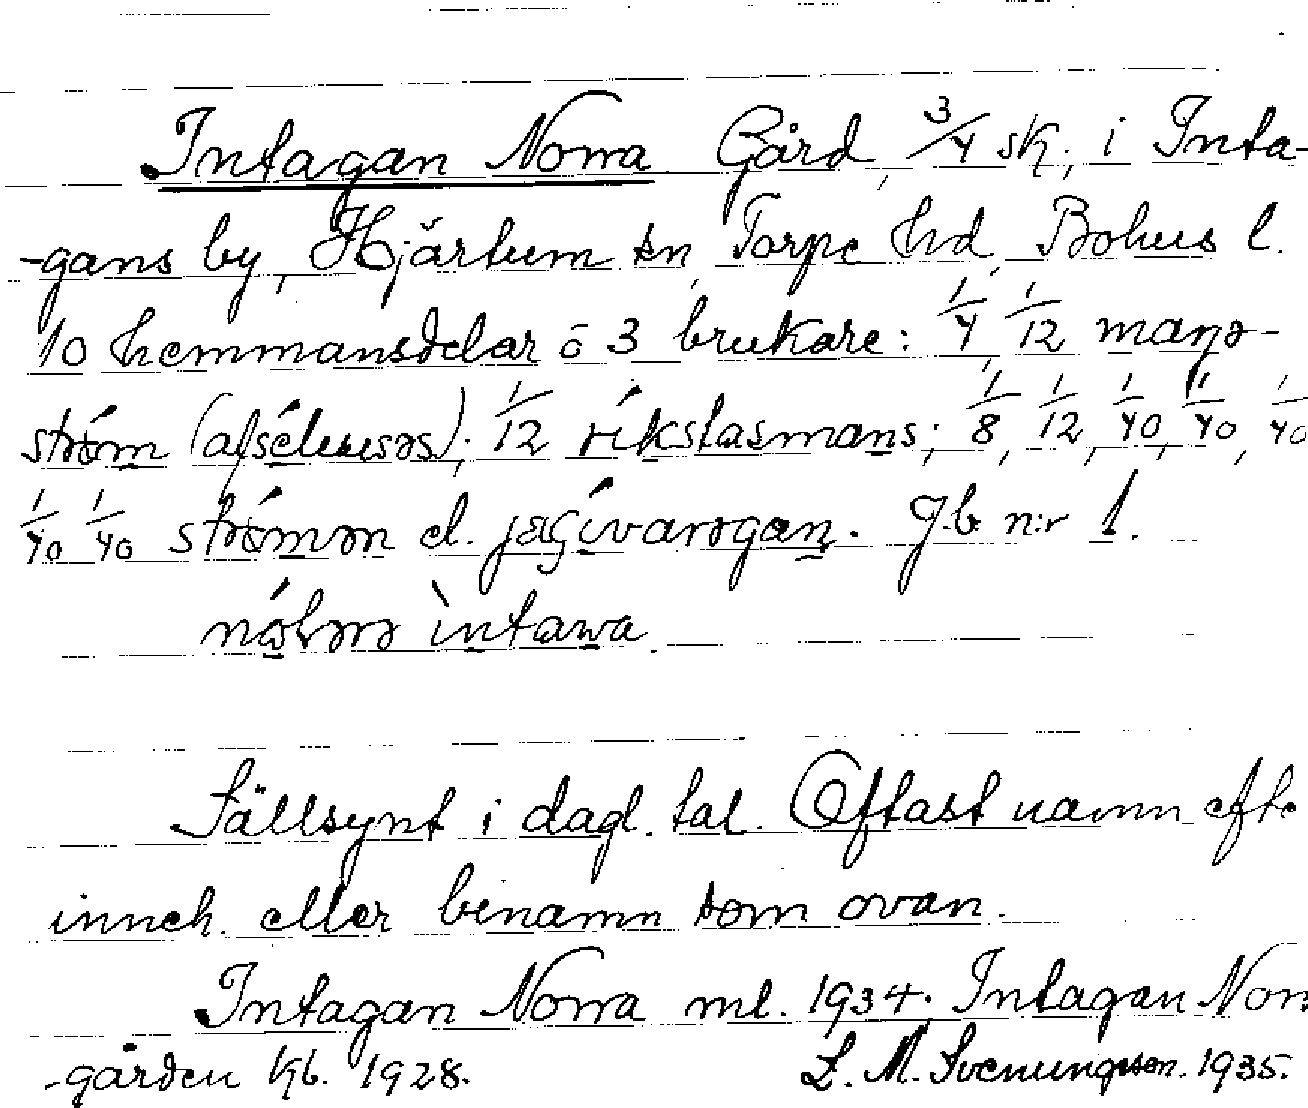 Intagan Norra Gård, 3/4 sk., i Inta-
-gans by, Hjärtum sn, Torpe hd, Bohus l.
10 hemmansdelar å 3 brukare: 1/4, 1/12 maŋə-
strǿm (afsélıusəs); 1/12 ríkstasmans; 1/8, 1/12, 1/40, 1/40, 1/40
1/40 1/40 strǿmən el. jægívarəgaṇ. Jb n:r 1.
nólərə ìntawa.
Sällsynt i dagl. tal. Oftast namn efte
inneh. eller benämn som ovan.
Intagan Norra ml. 1934. Intagan Norr
-gården Kb. 1928. L. M. Svenungsson. 1935.